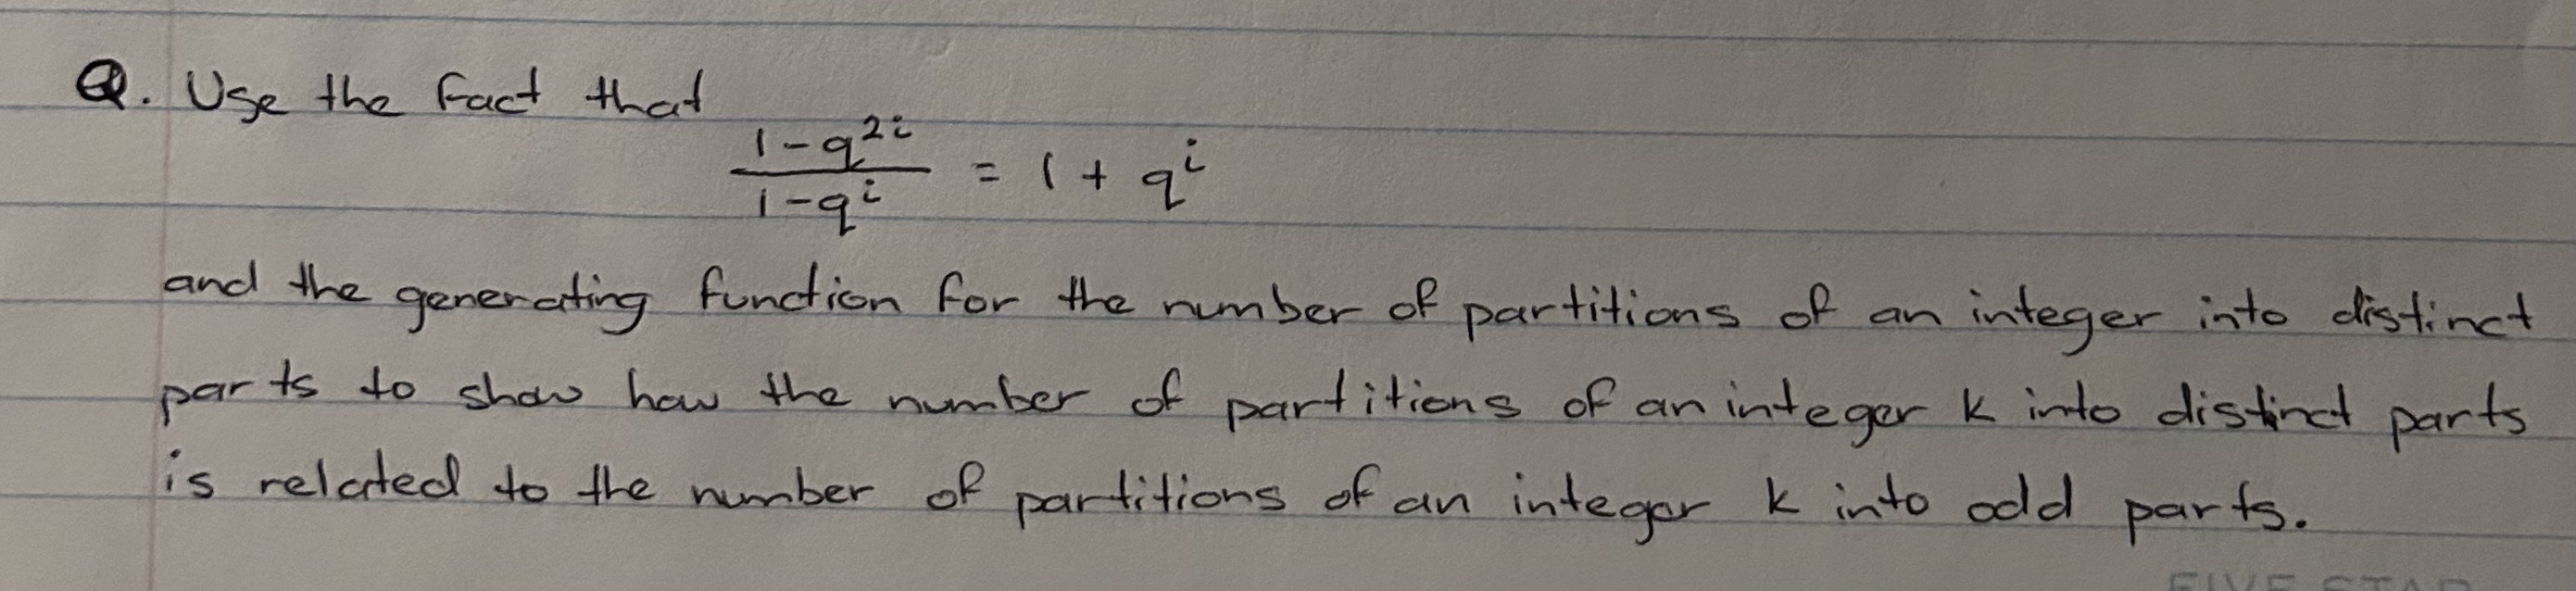 Q. Use the fact that
\frac{1-q^{2i}}{1-q^{i}} = 1 + q^{i}
and the generating function for the number of partitions of an integer into distinct
parts to show how the number of partitions of an integer k into distinct parts
is related to the number of partitions of an integer k into odd parts.
FIVE STAR